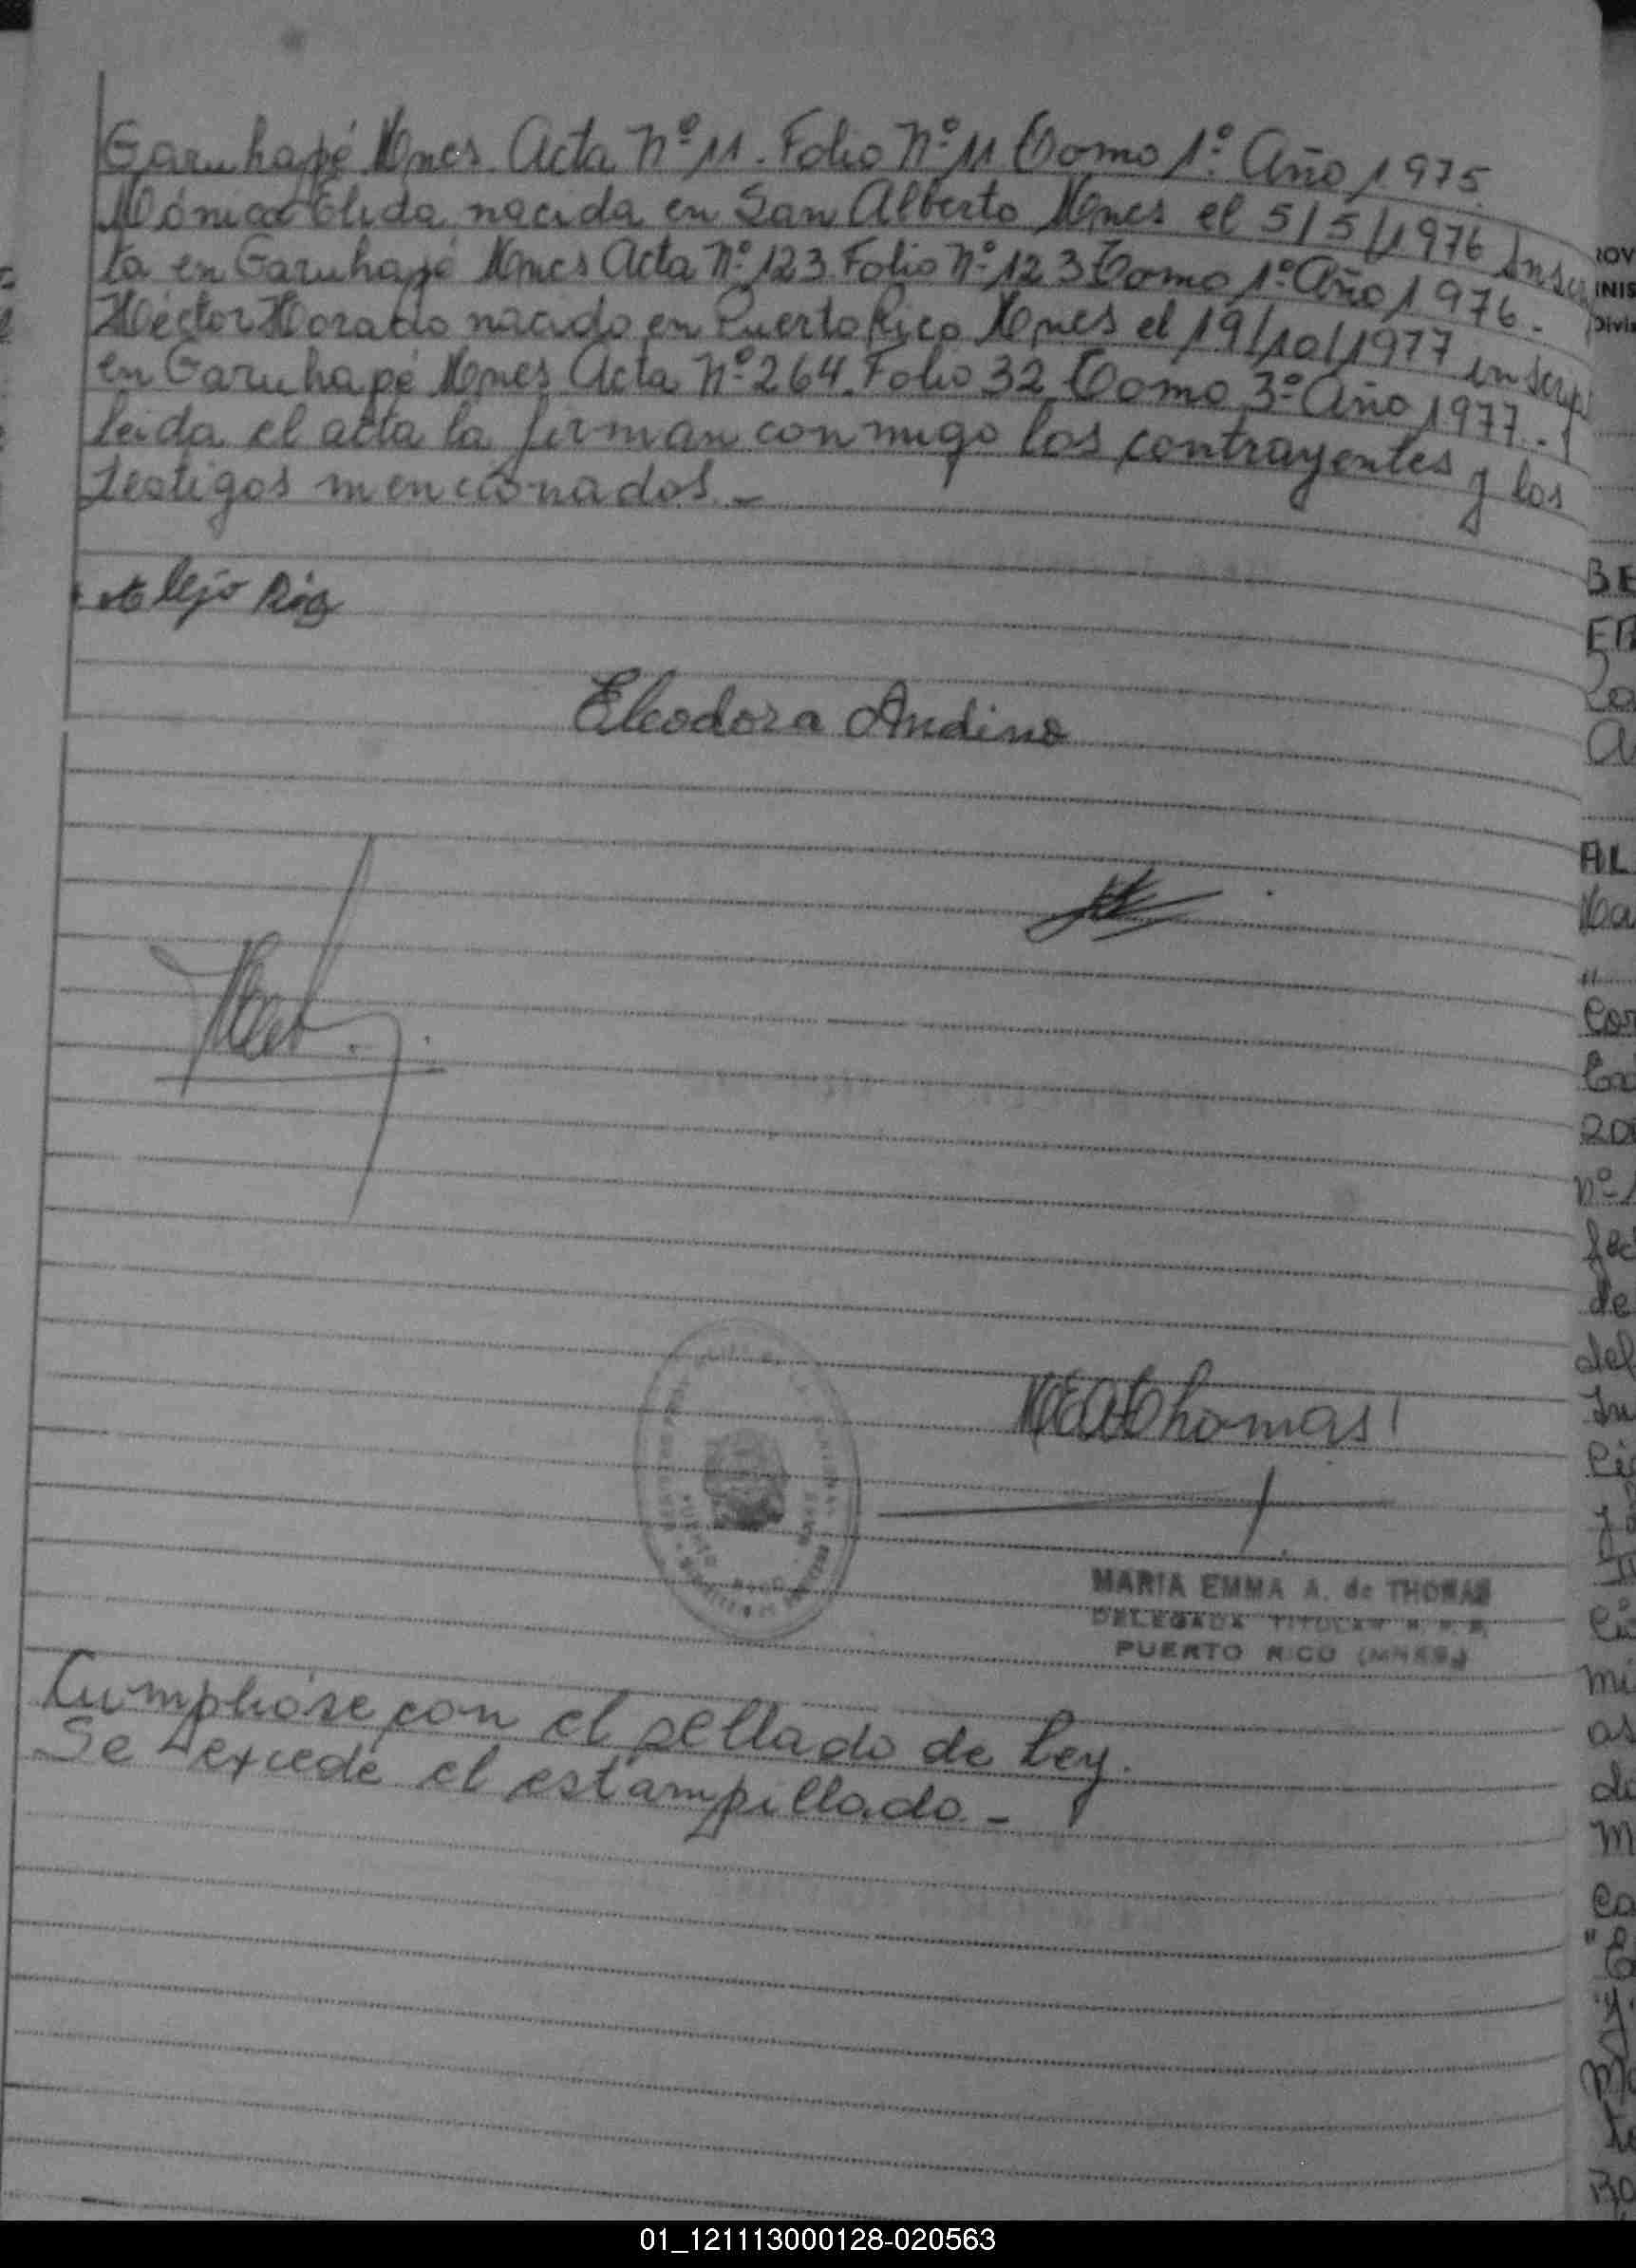 Garuhapé Mnes. Acta Nº 11. Folio Nº 11 Tomo 1º Año 1975.
Mónica Elida nacida en San Alberto Mnes el 5/5/1976 Inscrip
ta en Garuhapé Mnes Acta Nº 123 Folio Nº 123 Tomo 1º Año 1976.
Héctor Horacio nacido en Puerto Rico Mnes el 19/10/1977 inscrip
en Garuhapé Mnes Acta Nº 264. Folio 32 Tomo 3º Año 1977.-
leida el acta la firman conmigo los contrayentes y los
testigos mencionados.-
Alejo
Eleodora Andino
MEAThomas
PUERTO RICO
MARIA EMMA A. de THOMAS
DELEGADA TITULAR
PUERTO RICO (MNES.)
Cumplióse con el sellado de Ley.
Se excede el estampillado.-
NIS
Divi
BE
AL
Co
20
Nº
de
del
mi
as
m
01_121113000128-020563